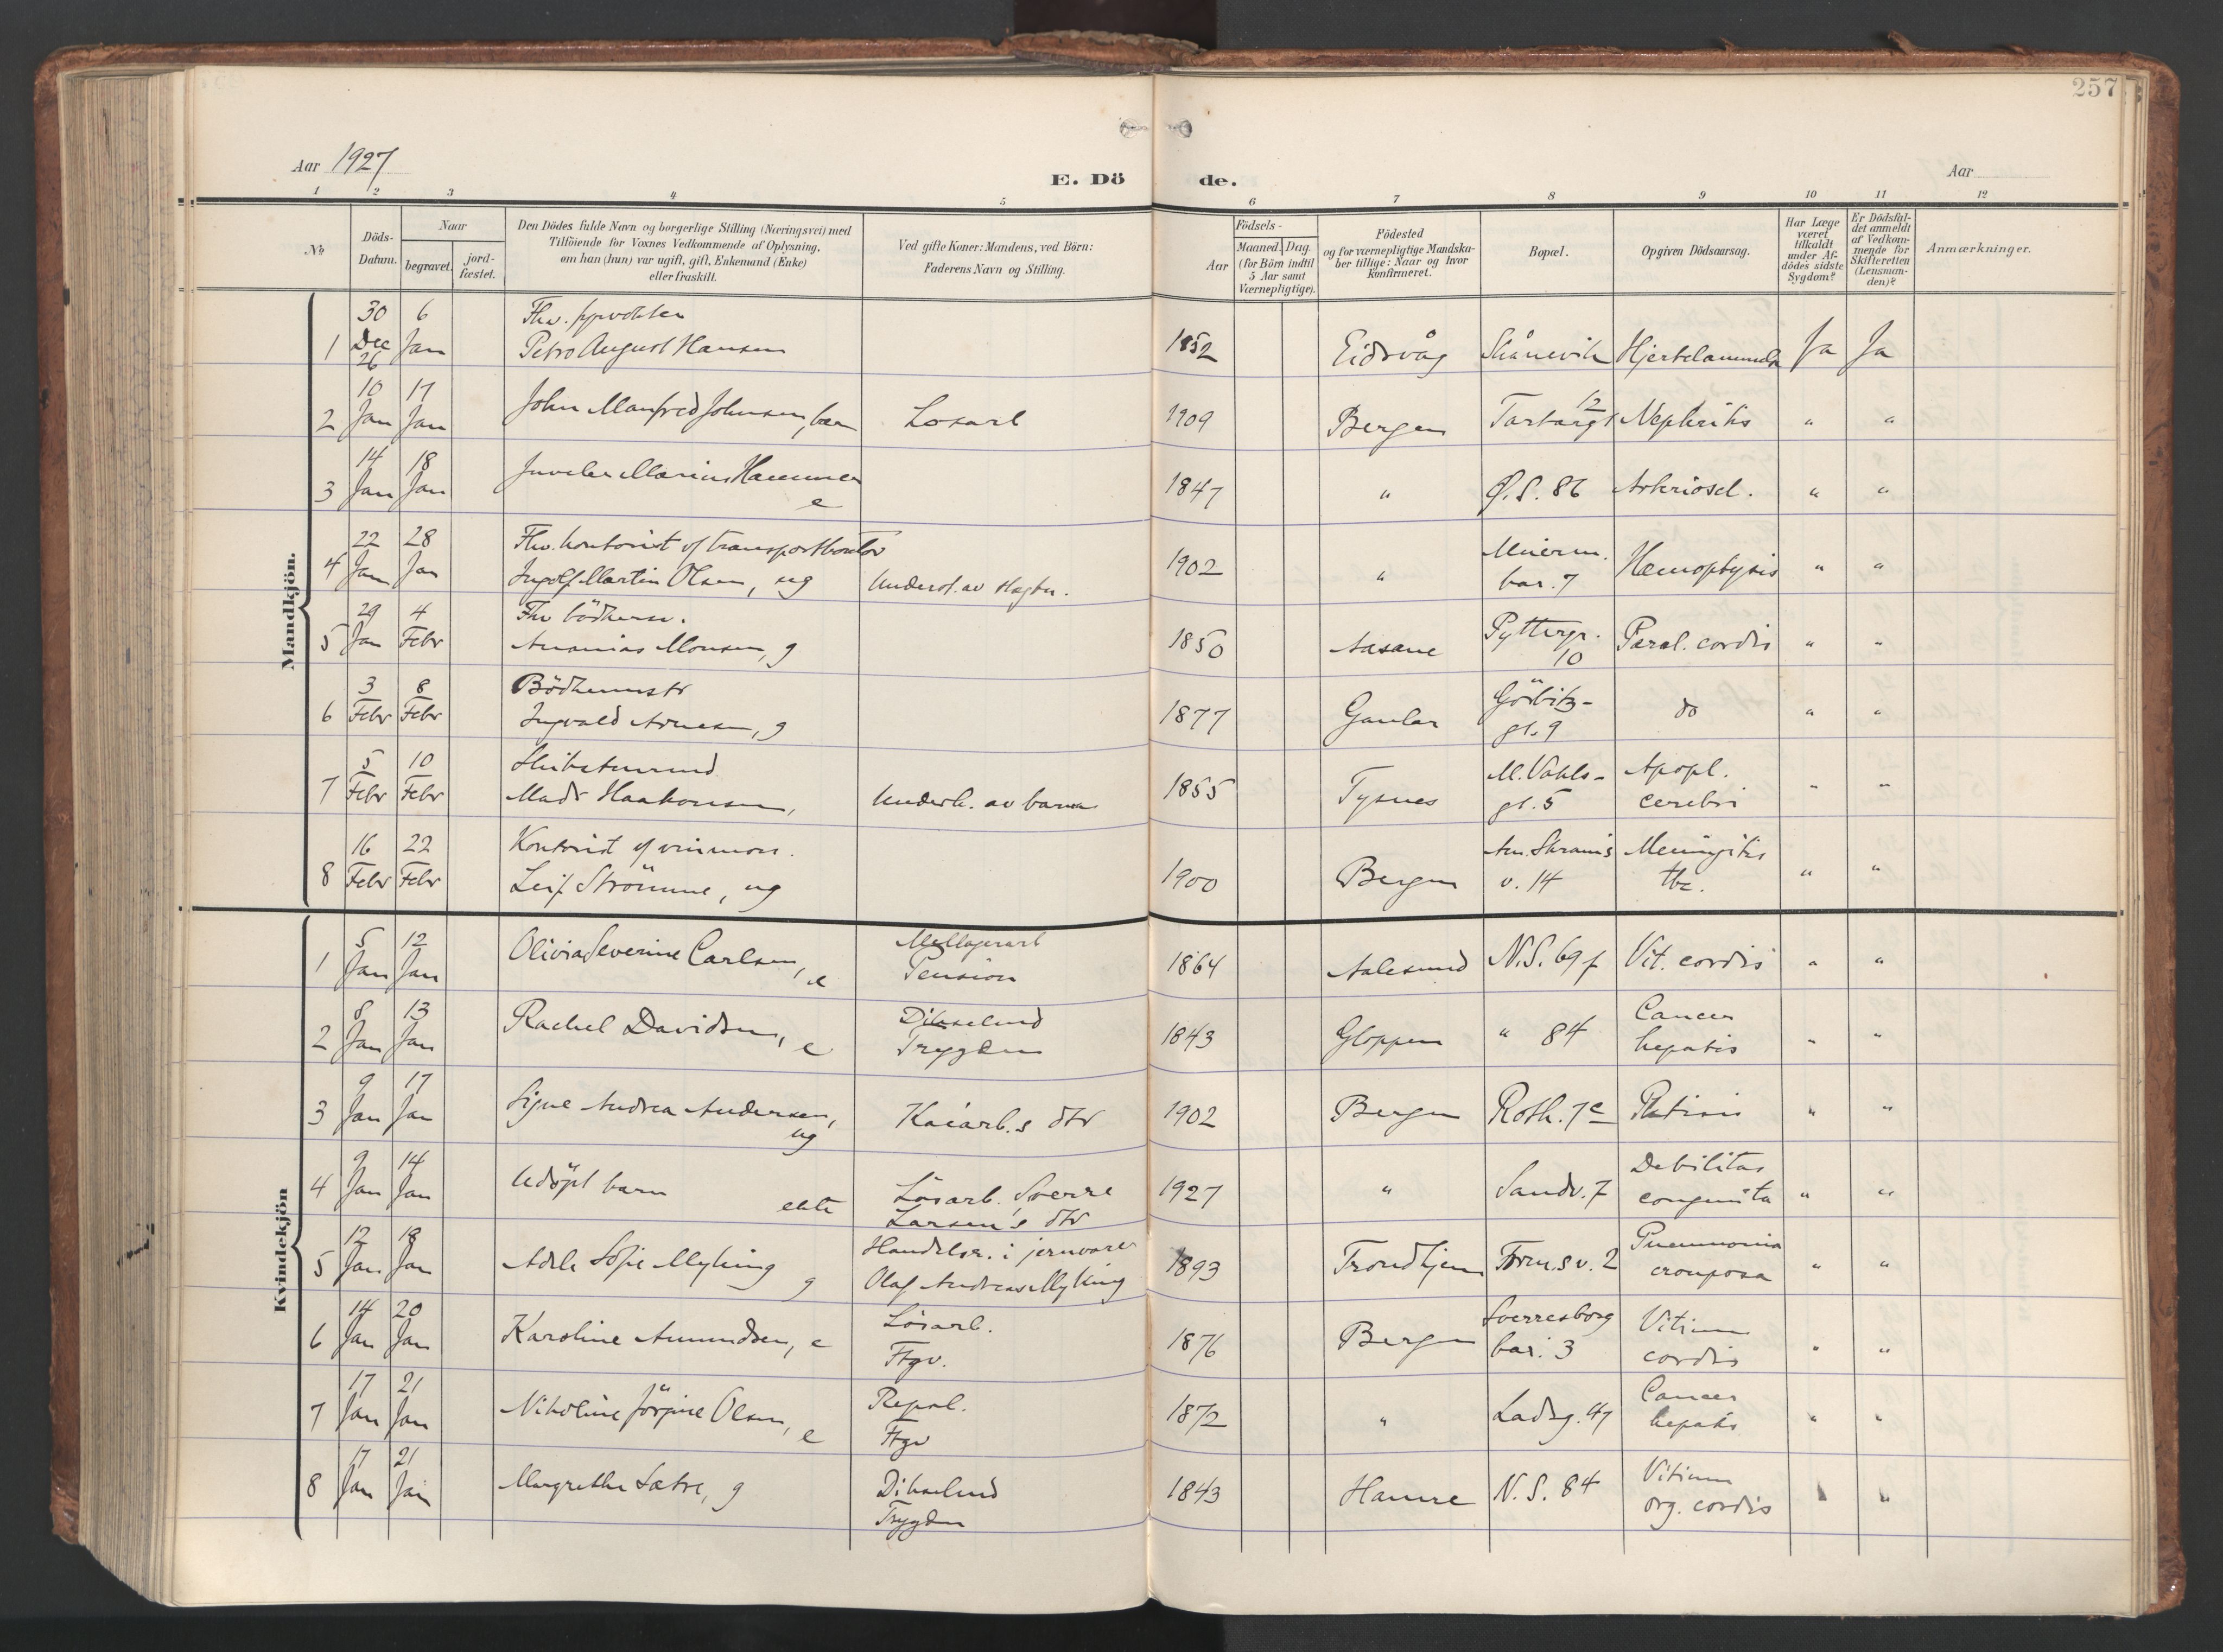 257
Aar 1927
E. Dö de.
Aar
1 2 3 4 5 6 7 8 9 10 11 12
No
Döds-Datum.
Naar
begravet.
jord-fæstet.
Den Dödes fulde Navn og borgerlige Stilling (Næringsvei) med
Tilföiende for Voxnes Vedkommende af Oplysning,
om han (hun) var ugift, gift, Enkemand (Enke)
eller fraskilt.
Ved gifte Koner: Mandens, ved Börn:
Faderens Navn og Stilling.
Födsels-
Aar
Maaned. Dag.
(for Börn indtil
5 Aar samt
Værnepligtige).
Födested
og for værnepligtige Mandska-
ber tillige: Naar og hvor
Konfirmeret.
Bopæl.
Opgiven Dödsaarsag.
Har Læge
været
tilkaldt
under Af-
dödes sidste
Sygdom?
Er Dödsfal-
det anmeldt
af Vedkom-
mende for
Skifteretten
(Lensman-
den)?
Anmærkninger.
Mandkjön.
1 30 Dec 26 6 Jan Fhv.
Petro August Hansen 1852 Eidsvåg Skånevik Hjertelammelse Ja Ja
2 10 Jan 17 Jan John Manfred Johnsen, barn Losarb 1909 Bergen 12 Nephritis " "
3 14 Jan 18 Jan Juveler Marius Hammer
e 1847 " Ø.S. 86 Arterioscl. " "
4 22 Jan 28 Jan Fhv. kontorist v/ transportkontor
Ingolf Martin Olsen, ug Underst. av slagtn. 1902 " bar. 7 Hæmoptysis " "
5 29 Jan 4 Febr Fhv bödkersv.
Ananias Monsen, g 1850 Aasane Pyttergr. 10 Paral. cordis " "
6 3 Febr 8 Febr Bödkermstr
Ingvald Arnesen, g 1877 Gaular Görbitz-
gt. 9 do " "
7 5 Febr 10 Febr Skibstømmermd
Mads Haakonsen, Underh. av barn 1855 Tysnes M. Vahls-
gt. 5 Apopl.
cerebri " "
8 16 Febr 22 Febr Kontorist v/ vinmon.
Leif Strömme, ug 1900 Bergen Am. Skrams
v. 14 Meningitis
tbc. " "
Kvindekjön
1 5 Jan 12 Jan Olivia Severine Carlsen, e
Pension 1864 Aalesund N.S. 69 f Vit. cordis " "
2 8 Jan 13 Jan Rachel Davidsen, e Dikselend
Trygden 1843 Gloppen " 84 Cancer
hepatis " "
3 9 Jan 17 Jan Signe Andrea Andersen,
ug Kaiarb.s dtr 1902 Bergen Roth. 7c Phtisis " "
4 9 Jan 14 Jan Udöpt barn
ekte Lösarb. Sverre
Larsen's dtr 1927 " Sandv. 7 Debilitas
congenita " "
5 12 Jan 18 Jan Adele Sofie Myking g Handelsr. i jernvarer
Olaf Andreas Myking 1893 Trondhjem Form.sv. 2 Pneumonia
crouposa " "
6 14 Jan 20 Jan Karoline Amundsen, e Lösarb.
Ftgv. 1876 Bergen Sverresborg
bar. 3 Vitium
cordis " "
7 17 Jan 21 Jan Nikoline Jörgine Olsen, e Repsl.
Ftgv 1872 " Ladeg. 47 Cancer
hepatis " "
8 17 Jan 21 Jan Margrethe Sætre, g Dikselend
Trygden 1843 Hamre N.S. 84 Vitium
org. cordis " "